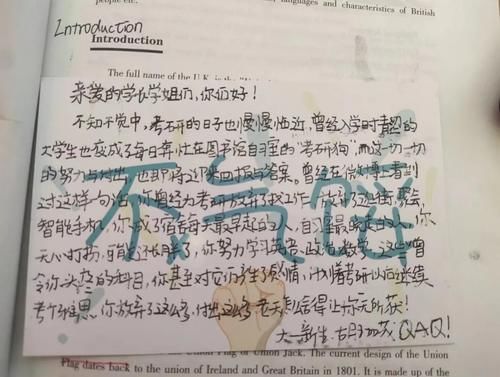 people etc.
languages and characteristics of British
Introduction
Introduction
The full name of the U.K. is the
亲爱的学长学姐们,你们好!
不知不觉中,考研的日子也慢慢临近,曾经入学时青涩的
大学生也变成了每日奔忙在图书馆自习室的“考研狗”而这一切一切
的努力与付出,也即将迎来回报与答案。曾经在微博上看到
过这样一句话,你曾经为考研放弃了找工作,放弃了逛街,聚会,
智能手机,你成了宿舍每天最早起的人,自习室最晚走的人,你
无心打扮,可能还长胖了,你努力学习英语、政治、数学,这些曾
令你头疼的科目,你甚至对它们产生了感情,计划着考研以后继续
考个雅思。你放弃了这么多,付出这么多,老天怎么舍得让你无所获!
大一新生:
QAQ!
不言弃
Union Flag or Union Jack. The current design of the Union
Flag dates back to the union of Ireland and Great Britain in 1801. It is made up of the